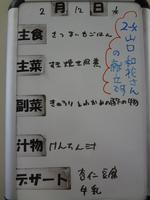 2月12日
主食 さつまいもごはん
主菜 すき焼き風煮
副菜 きゅうりとわかめの酢の物
汁物 けんちん汁
デザート 杏仁豆腐
牛乳
山口
さんの献立です